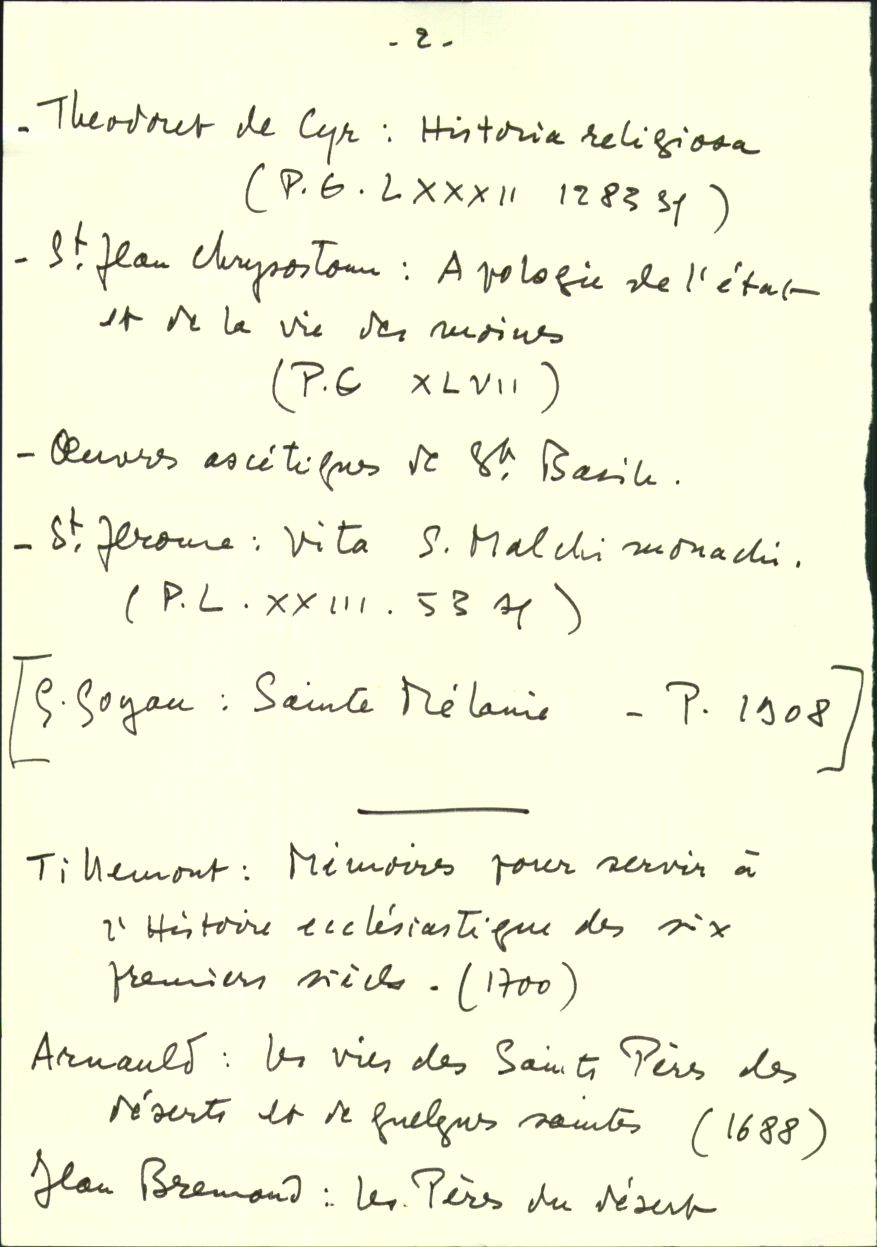 - 2 -
- Theodoret de Cyr : Historia religiosa
(P.G. LXXXII 1283 sq)
- St. Jean Chrysostome : Apologie de l'état
et de la vie des moines
(P.G XLVII)
- Œuvres ascétiques de St. Basile.
- St. Jerome : Vita S. Malchi monachi.
(P.L. XXIII. 53 sq)
[G. Goyau : Sainte Mélanie - P. 1908]
Tillemont : Mémoires pour servir à
l'Histoire ecclésiastique des six
premiers siècles. (1700)
Arnauld : les vies des Saints Pères des
déserts et de quelques saintes (1688)
Jean Bremond : les Pères du désert